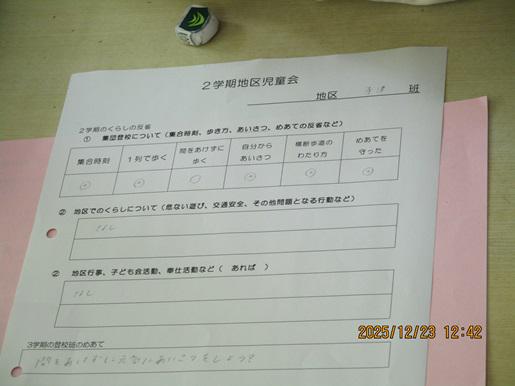 2学期地区児童会
地区 班
2学期のくらしの反省
① 集団登校について（集合時刻、歩き方、あいさつ、めあての反省など）
集合時刻 1列で歩く 間をあけずに歩く 自分からあいさつ 横断歩道のわたり方 めあてを守った
◎ ◎ ○ ◎ ◎ ◎
② 地区でのくらしについて（危ない遊び、交通安全、その他問題となる行動など）
なし
② 地区行事、子ども会活動、奉仕活動など（ あれば ）
なし
3学期の登校班のめあて
間をあけずに元気にあいさつをしよう
2025/12/23 12:42